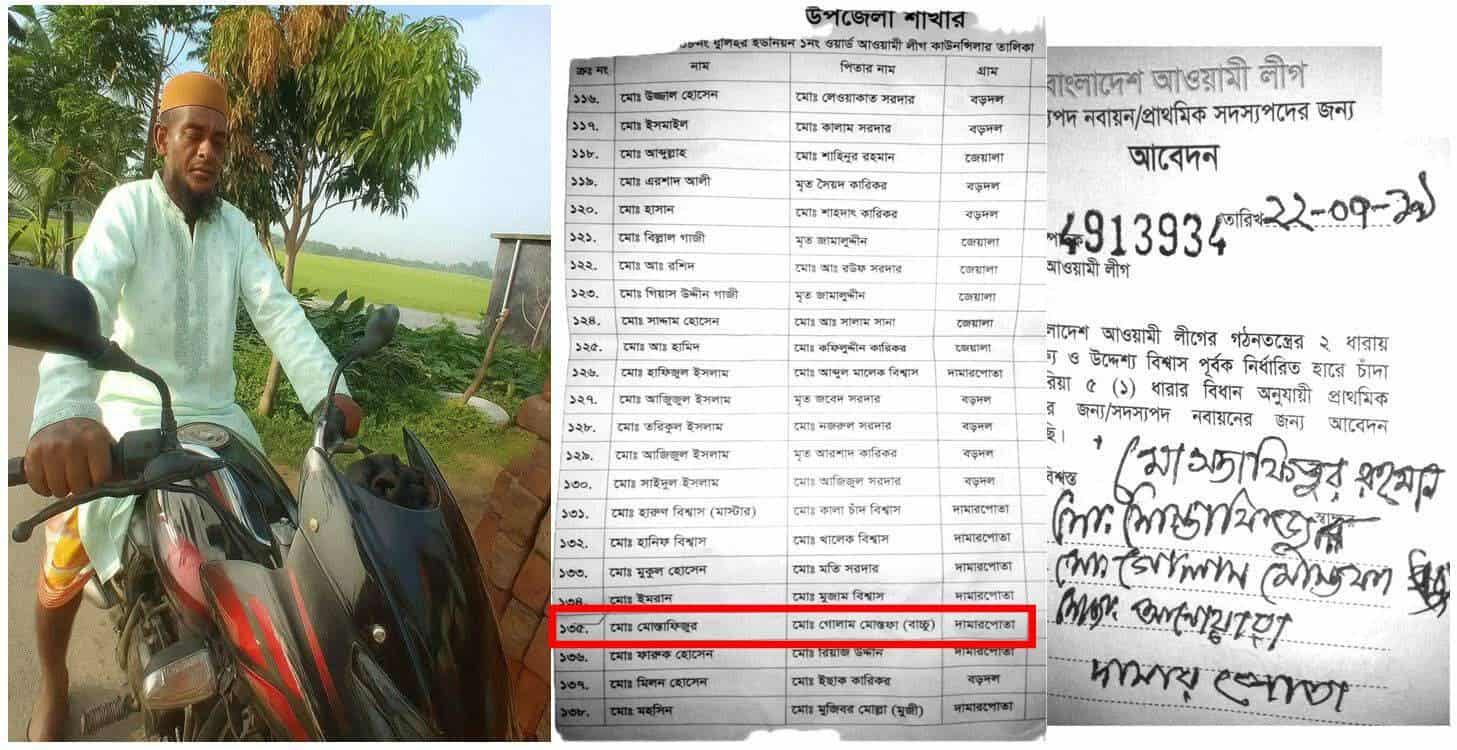 উপজেলা শাখার
ধুলিহর ইউনিয়ন ১নং ওয়ার্ড আওয়ামী লীগ কাউন্সিলার তালিকা
ক্রঃ নং নাম পিতার নাম গ্রাম
১১৬. মোঃ উজ্জাল হোসেন মোঃ লেওয়াকাত সরদার বড়দল
১১৭. মোঃ ইসমাইল মোঃ কালাম সরদার বড়দল
১১৮. মোঃ আব্দুল্লাহ মোঃ শাহিনুর রহমান জেয়ালা
১১৯. মোঃ এরশাদ আলী মৃত সৈয়দ কারিকর বড়দল
১২০. মোঃ হাসান মোঃ শাহদাৎ কারিকর বড়দল
১২১. মোঃ বিল্লাল গাজী মৃত জামালুদ্দীন জেয়ালা
১২২. মোঃ আঃ রশিদ মোঃ আঃ রউফ সরদার জেয়ালা
১২৩. মোঃ গিয়াস উদ্দীন গাজী মৃত জামালুদ্দীন জেয়ালা
১২৪. মোঃ সাদ্দাম হোসেন মোঃ আঃ সালাম সানা জেয়ালা
১২৫. মোঃ আঃ হামিদ মোঃ কফিলুদ্দীন কারিকর জেয়ালা
১২৬. মোঃ হাফিজুল ইসলাম মোঃ আব্দুল মালেক বিশ্বাস দামারপোতা
১২৭. মোঃ আজিজুল ইসলাম মৃত জবেদ সরদার বড়দল
১২৮. মোঃ তরিকুল ইসলাম মোঃ নজরুল সরদার বড়দল
১২৯. মোঃ আজিজুল ইসলাম মৃত আরশাদ কারিকর বড়দল
১৩০. মোঃ সাইদুল ইসলাম মোঃ আজিজুল সরদার বড়দল
১৩১. মোঃ হারুণ বিশ্বাস (মাস্টার) মোঃ কালা চাঁদ বিশ্বাস দামারপোতা
১৩২. মোঃ হানিফ বিশ্বাস মোঃ খালেক বিশ্বাস দামারপোতা
১৩৩. মোঃ মুকুল হোসেন মোঃ মতি সরদার দামারপোতা
১৩৪. মোঃ ইমরান মোঃ মুজাম বিশ্বাস দামারপোতা
১৩৫. মোঃ মোস্তাফিজুর মোঃ গোলাম মোস্তফা (বাচ্চু) দামারপোতা
১৩৬. মোঃ ফারুক হোসেন মোঃ রিয়াজ উদ্দীন দামারপোতা
১৩৭. মোঃ মিলন হোসেন মোঃ ইছাক কারিকর বড়দল
১৩৮. মোঃ মহসিন মোঃ মুজিবর মোল্লা (মুজী) দামারপোতা
বাংলাদেশ আওয়ামী লীগ
নবায়ন/প্রাথমিক সদস্যপদের জন্য
আবেদন
4913934 তারিখ ২২-০৭-১৯
আওয়ামী লীগ
আওয়ামী লীগের গঠনতন্ত্রের ২ ধারায়
ও উদ্দেশ্য বিশ্বাস পূর্বক নির্ধারিত হারে চাঁদা
৫ (১) ধারার বিধান অনুযায়ী প্রাথমিক
জন্য/সদস্যপদ নবায়নের জন্য আবেদন
মোস্তাফিজুর রহমান
মোঃ মোস্তাফিজুর
মোঃ গোলাম মোস্তফা
আনোয়ারা
দামার পোতা